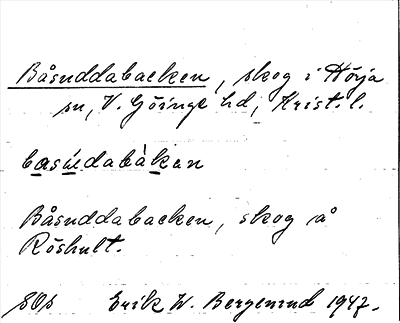 Båsuddabacken, skog i Hörja
sn, V. Göinge hd, Krist. l.
basúdabàkan
Båsuddabacken, skog å
Röshult.
SOs Erik W. Bergenrud 1947.